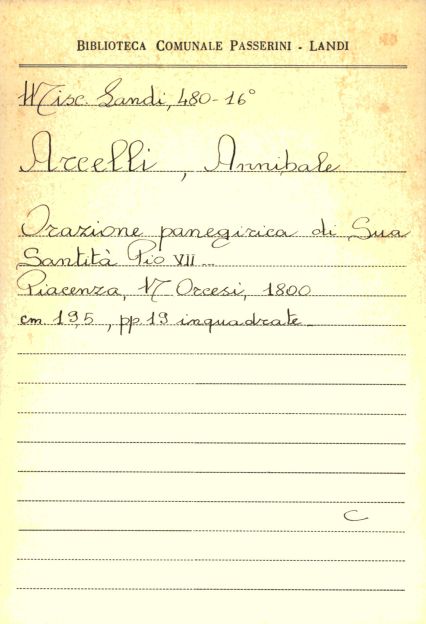 BIBLIOTECA COMUNALE PASSERINI - LANDI
Misc. Landi, 480-16°
Arcelli, Annibale
Orazione panegirica di Sua
Santità Pio VII...
Piacenza, N Orcesi, 1800
cm 19,5, pp. 19 inquadrate
C